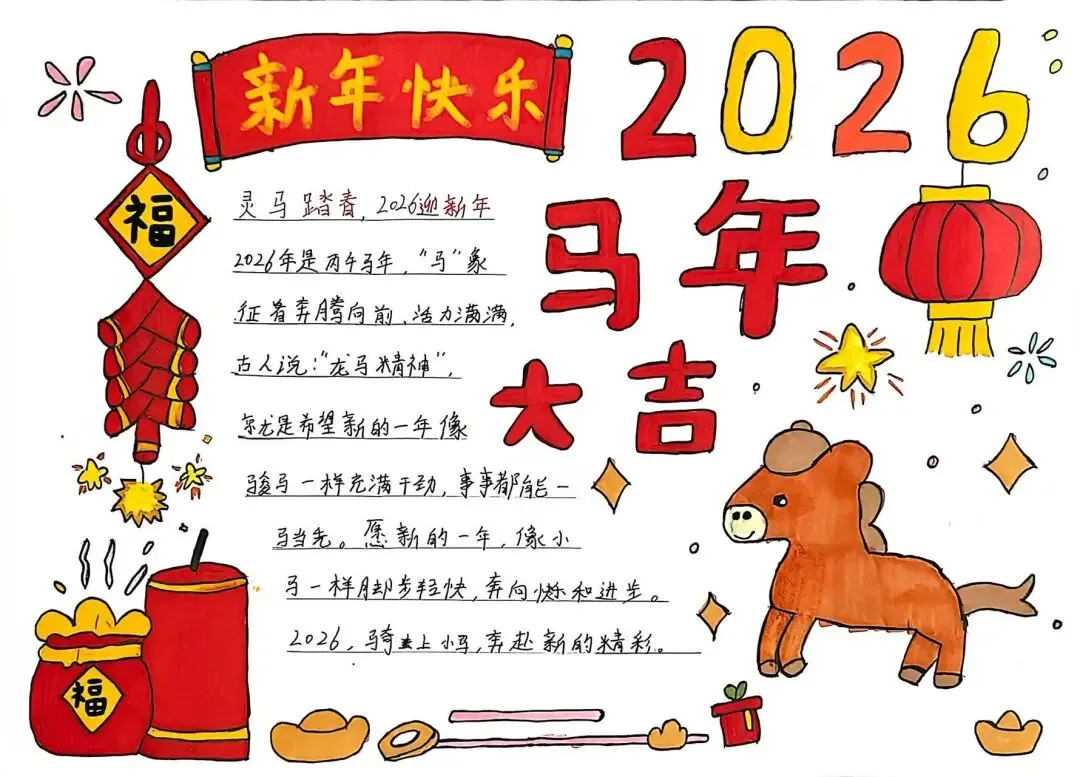 新年快乐
2026
福
马年
大吉
灵马踏春，2026迎新年
2026年是丙午马年，“马”象
征着奔腾向前、活力满满，
古人说：“龙马精神”，
就是希望新的一年像
骏马一样充满干劲，事事都能一
马当先。愿新的一年，像小
马一样脚步轻快，奔向快乐和进步。
2026，骑上小马，奔赴新的精彩。
福